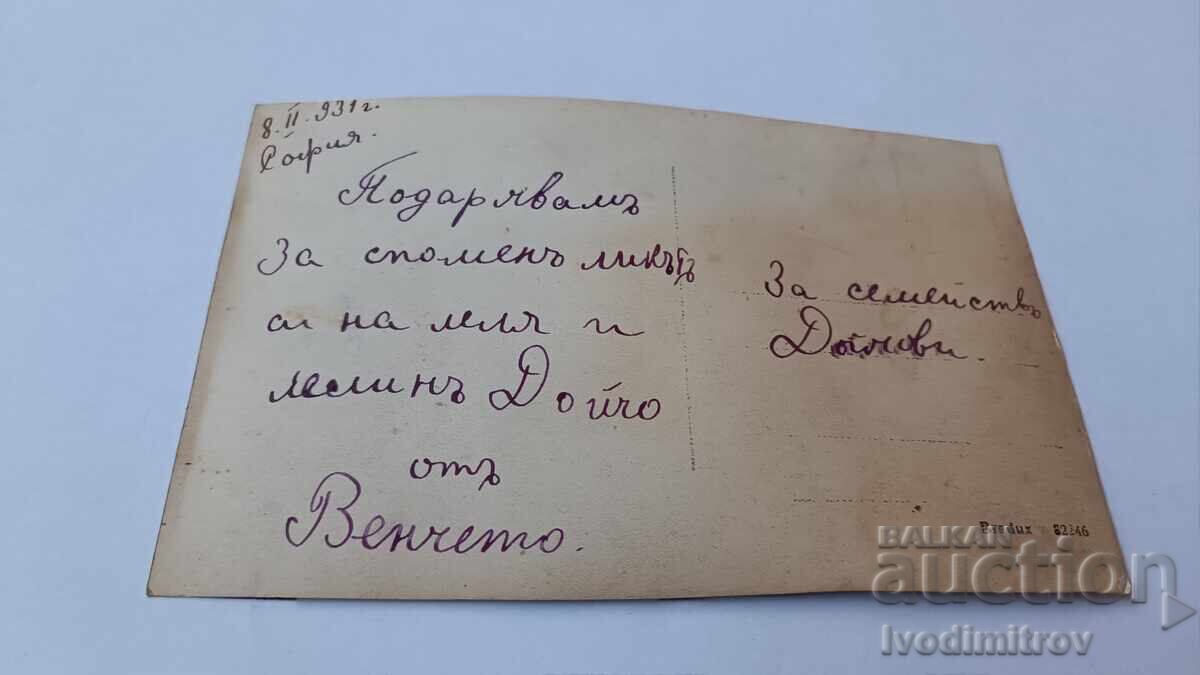 8. II. 931 г.
София.
Подарявамъ
За споменъ ликътъ
си на леля и
лелинъ Дойчо
отъ
Венчето.
За семейство
Дойчови.
82246
BALKAN
auction
Ivodimitrov